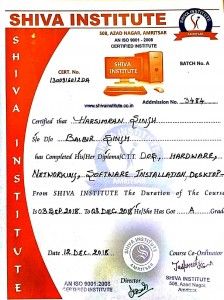 SHIVA INSTITUTE
508, AZAD NAGAR, AMRITSAR
AN ISO 9001 - 2008
CERTIFIED INSTITUTE
BATCH No. A
CERT. No.
www.shivainstitute.co.in
Admission No. 3484
Certified that HARSIMRAN SINGH
S/o D/o BALBIR SINGH
has Completed His/Her Diploma/C.T.T DOE, HARDWARE,
NETWORKING, SOFTWARE INSTALLATION, DESKTOP
From SHIVA INSTITUTE The Duration of The Course
03 SEP. 2018 TO 03 DEC. 2018 He/She Has Got A Grade
Date 12 DEC. 2018
Course Co-Ordinator
AN ISO 9001-2008
CERTIFIED INSTITUTE
Director
SHIVA INSTITUTE
508, AZAD NAGAR,
AMRITSAR
SHIVA INSTITUTE